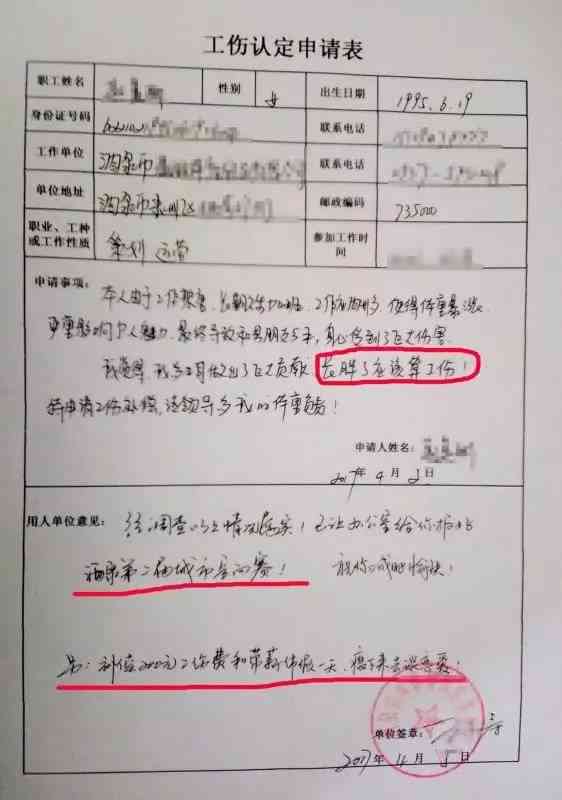 工伤认定申请表
职工姓名 性别 女 出生日期 1995.6.19
身份证号码 联系电话
工作单位 酒泉市 联系电话
单位地址 酒泉市肃州区 邮政编码 735000
职业、工种或工作性质 策划 运营 参加工作时间
申请事项：本人由于工作繁忙，长期加班，工作应酬多，使得体重暴涨，
严重影响个人魅力，最终导致和男朋友分手，身心受到了巨大伤害。
我觉得，我为公司做出了巨大贡献，长胖了应该算工伤！
特申请工伤补偿，请领导为我的体重负责！
申请人姓名：
2017年4月2日
用人单位意见：经调查以上情况属实！已让办公室给你报名
酒泉第二届城市 赛！ 祝你减肥愉快！
另：补偿2000元工伤费和带薪休假一天，瘦下来去谈恋爱！
单位签章：
2017年4月5日